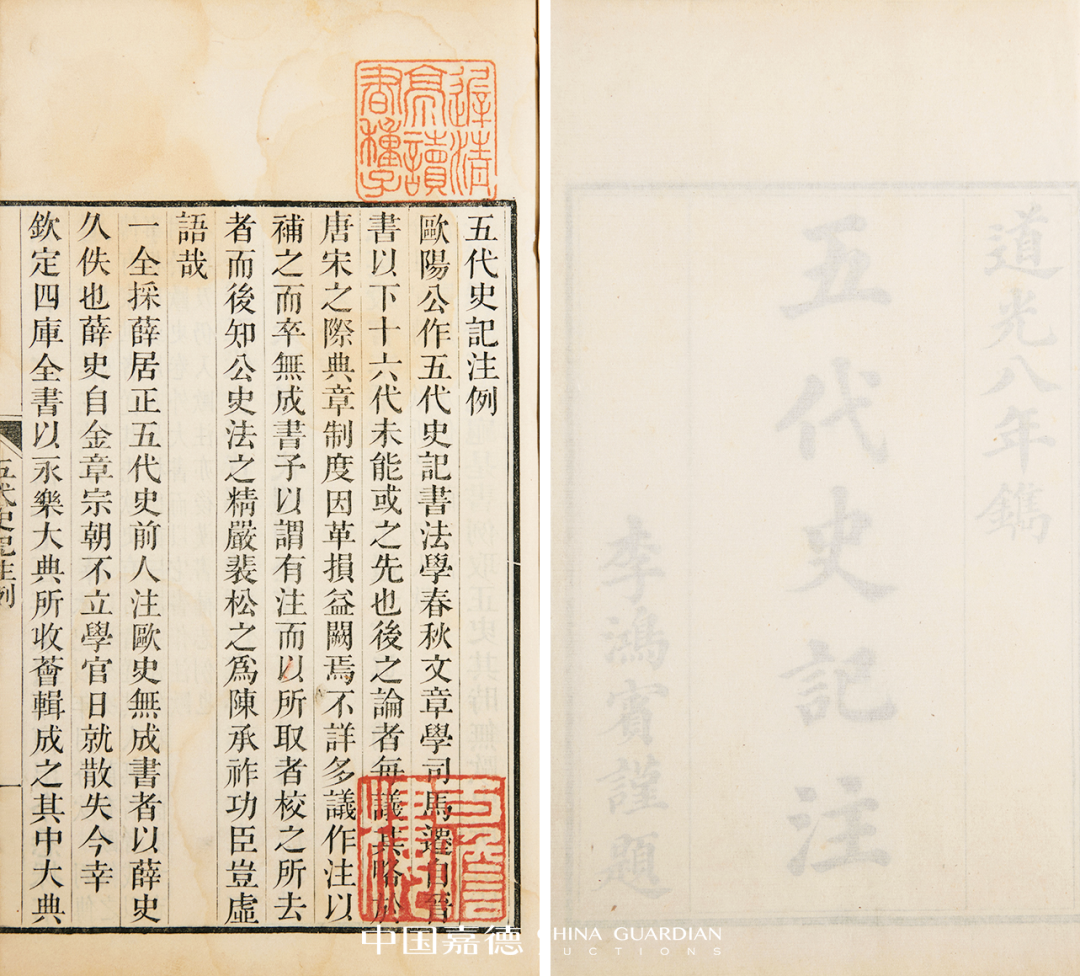 道光八年鐫
五代史記注
李鴻賓謹題
五代史記注例
歐陽公作五代史記書法學春秋文章學司馬遷自晉
書以下十六代未能或之先也後之論者每議其略於
唐宋之際典章制度因革損益闕焉不詳多議作注以
補之而卒無成書予以謂有注而以所取者校之所去
者而後知公史法之精嚴裴松之爲陳承祚功臣豈虛
語哉
一全採薛居正五代史前人注歐史無成書者以薛史
久佚也薛史自金章宗朝不立學官日就散失今幸
欽定四庫全書以永樂大典所收薈輯成之其中大典
五代史記注例
一
中国嘉德 CHINA GUARDIAN
AUCTIONS